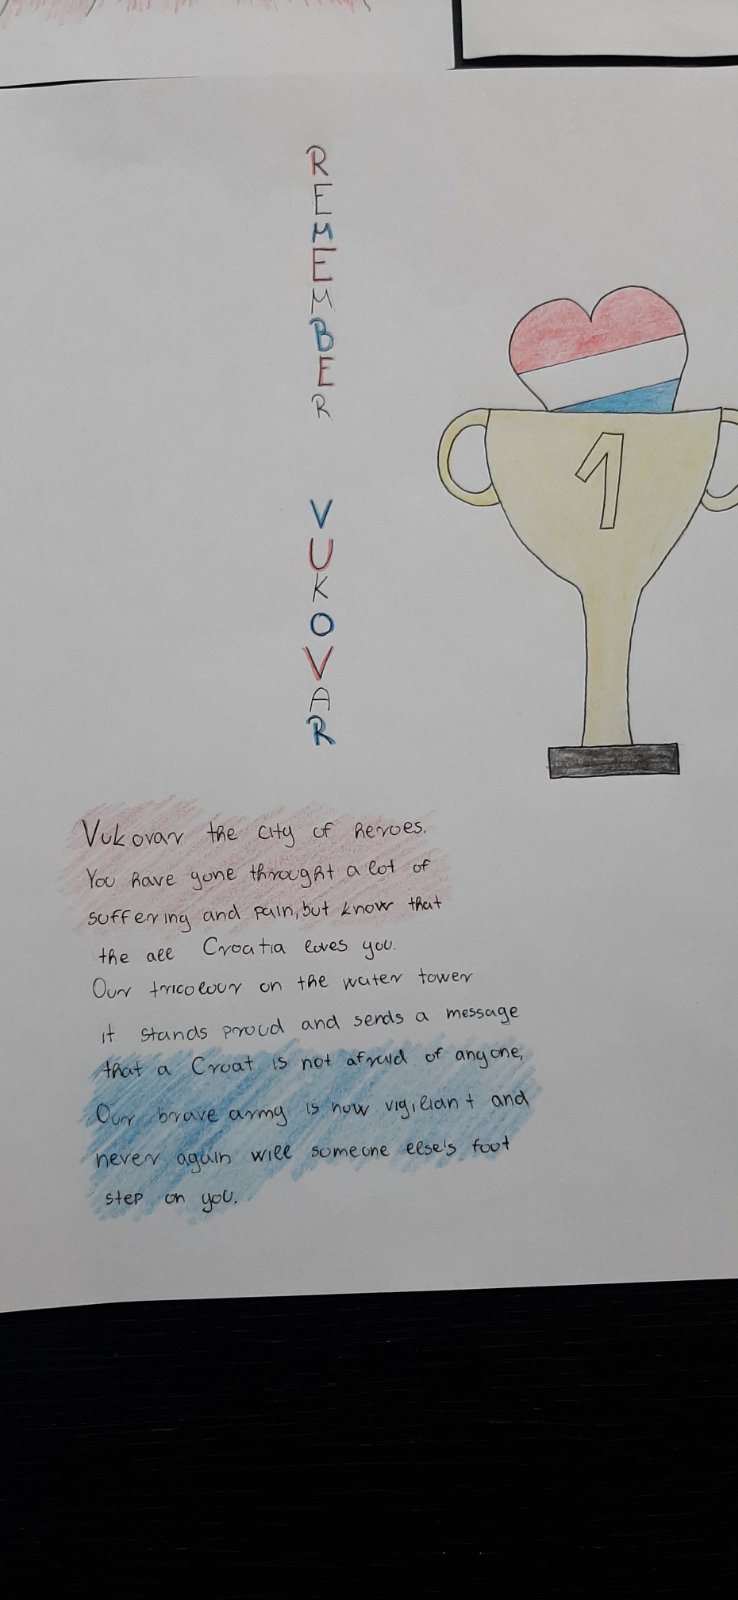 REMEMBER
VUKOVAR
1
Vukovar the city of heroes.
You have gone throught a lot of
suffering and pain, but know that
the all Croatia loves you.
Our tricolour on the water tower
it stands proud and sends a message
that a Croat is not afraid of anyone,
Our brave army is now vigiliant and
never again will someone else's foot
step on you.